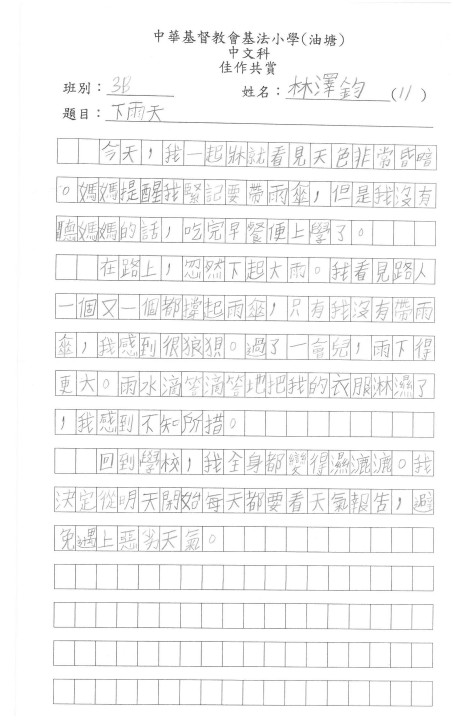 中華基督教會基法小學(油塘)
中文科
佳作共賞
班別：3B 姓名：林澤鈞(11)
題目：下雨天
今天，我一起牀就看見天色非常昏暗
。媽媽提醒我緊記要帶雨傘，但是我沒有
聽媽媽的話，吃完早餐便上學了。
在路上，忽然下起大雨。我看見路人
一個又一個都撐起雨傘，只有我沒有帶雨
傘，我感到很狼狽。過了一會兒，雨下得
更大。雨水滴答滴答地把我的衣服淋濕了
，我感到不知所措。
回到學校，我全身都變得濕漉漉。我
決定從明天開始每天都要看天氣報告，避
免遇上惡劣天氣。